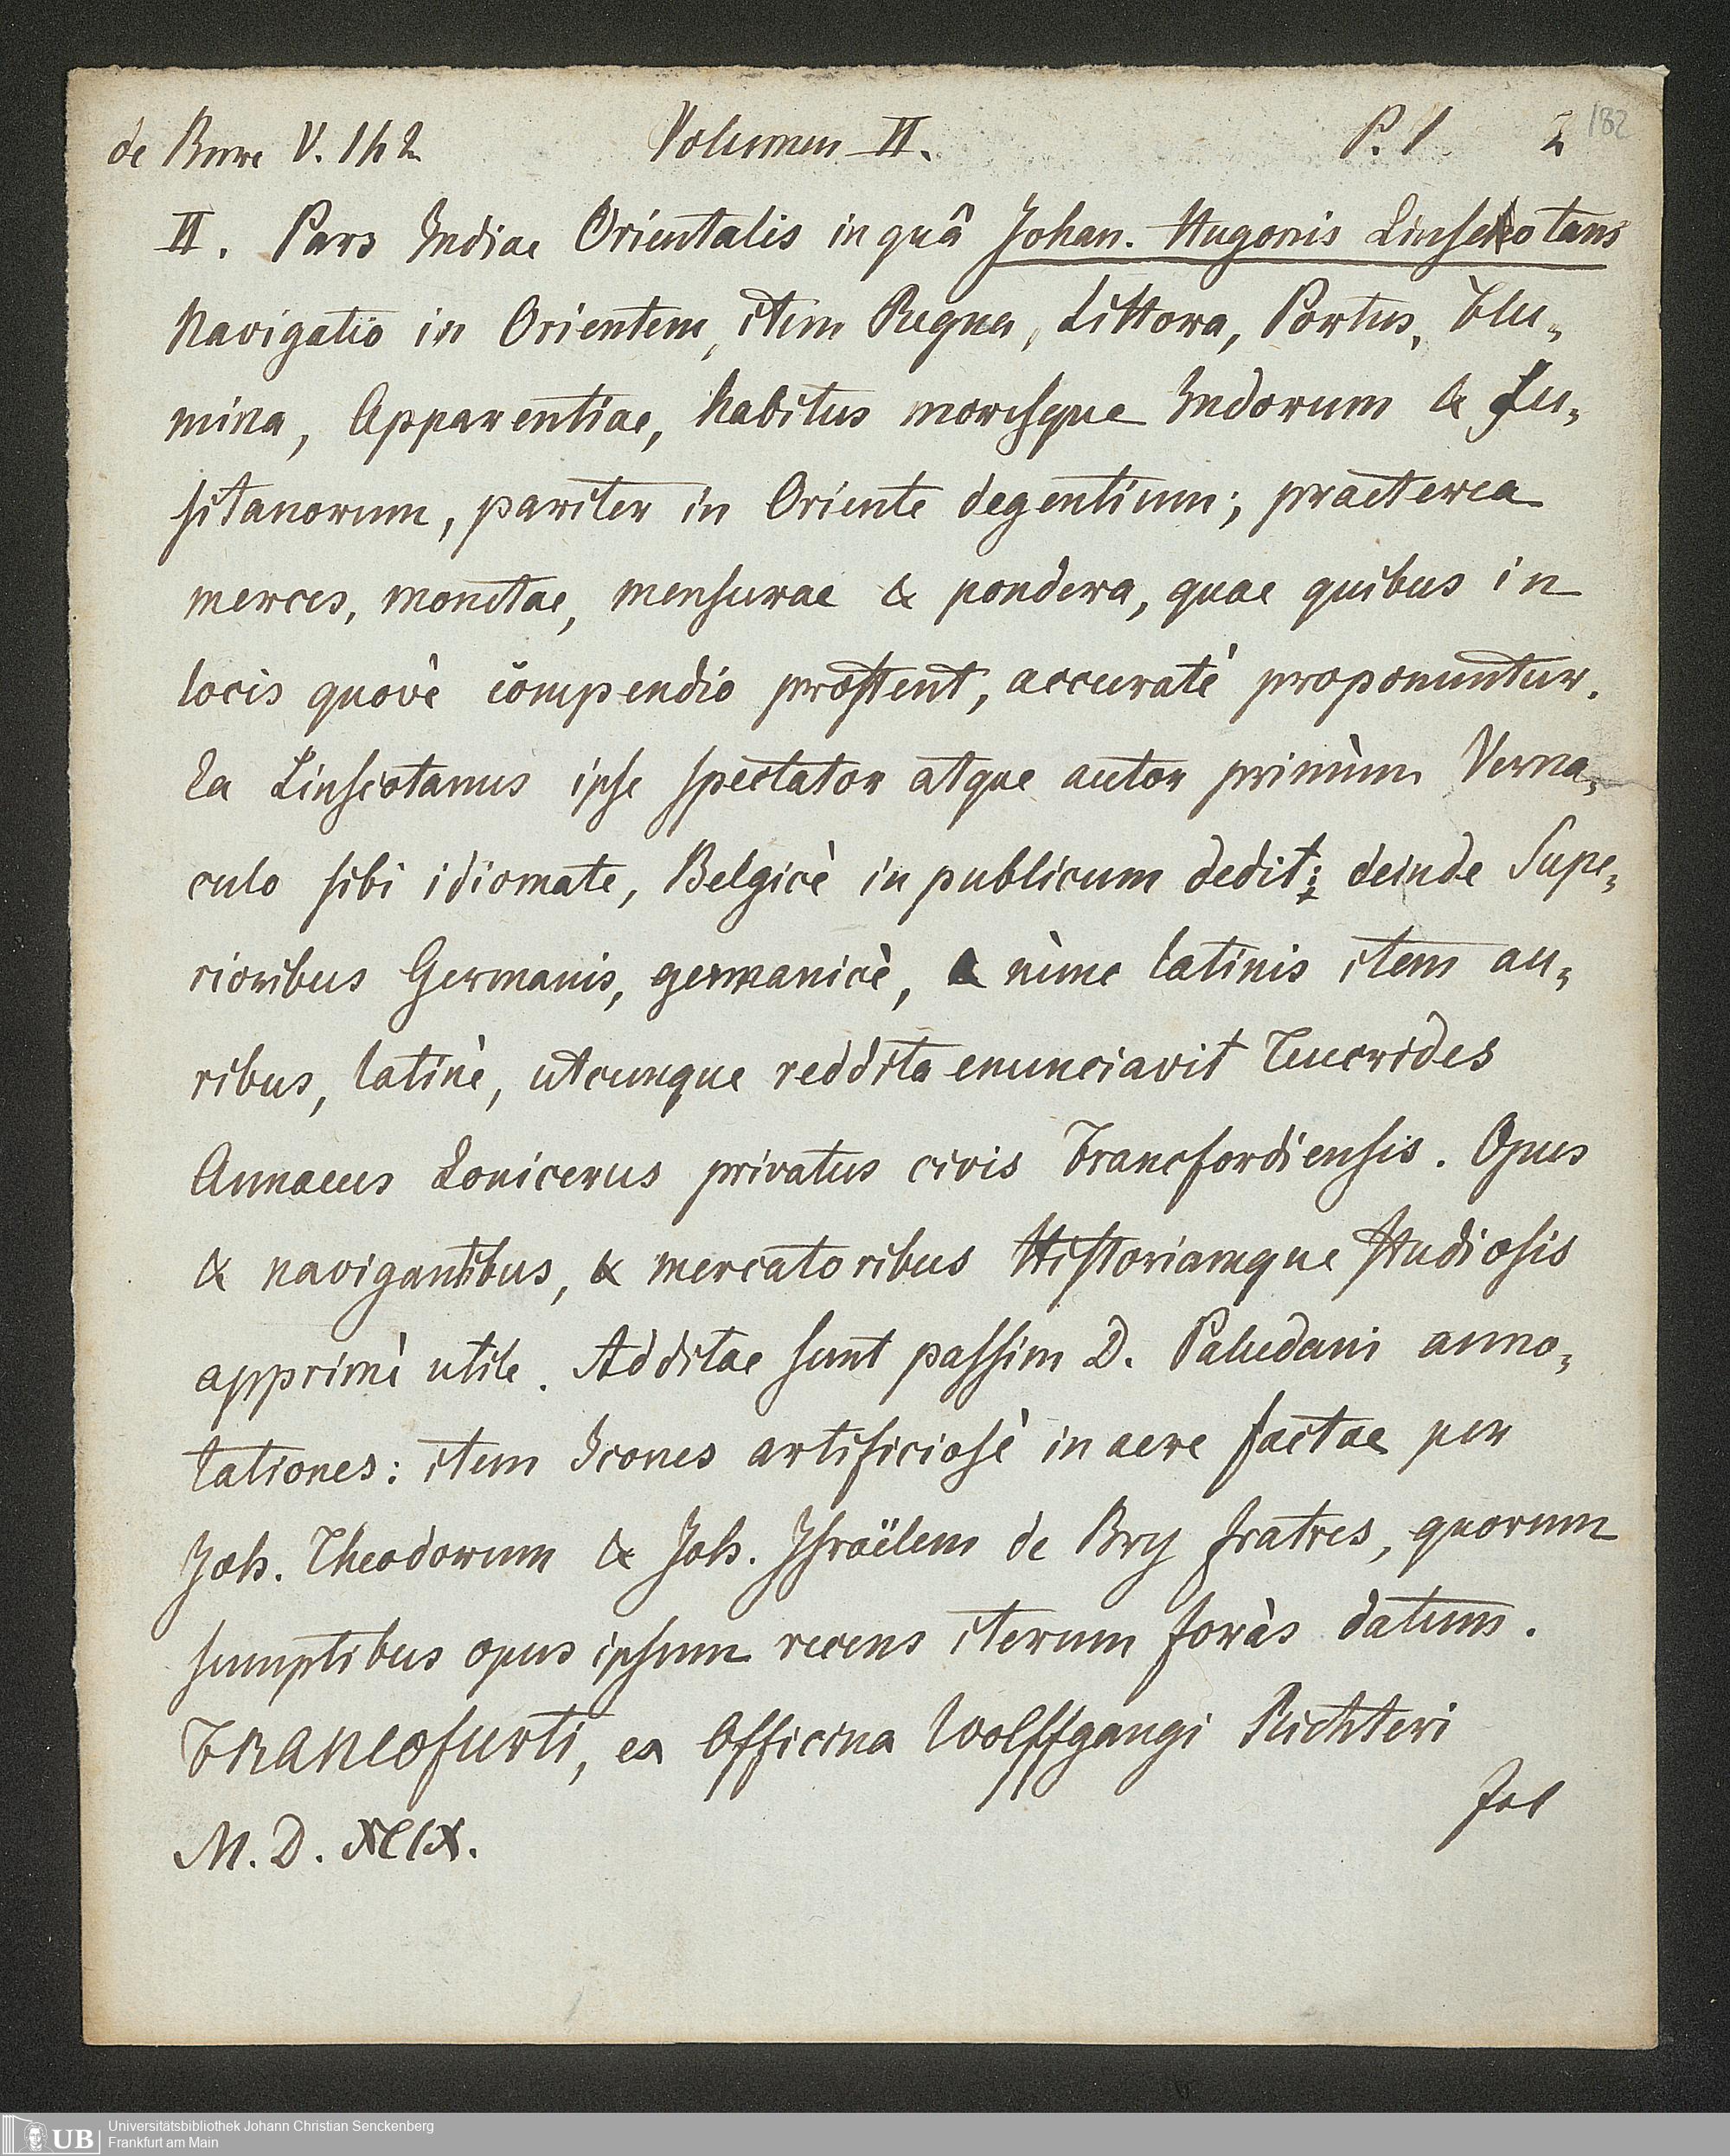 de Bure V. 142 Volumen II. P. 1 2 182
II. Pars Indiae Orientalis in quâ Johan. Hugonis Linschotans
Navigatio in Orientem, item Regna, Littora, Portus, Flu-
mina, Apparentiae, habitus moresque Indorum & Lu-
sitanorum, pariter in Oriente degentium; praeterea
merces, monetae, mensurae & pondera, quae quibus in
locis quovè compendio prostent, accuratè proponuntur.
Ea Linscotanus ipse spectator atque autor primùm Verna-
culo sibi idiomate, Belgicè in publicum dedit; deinde Supe-
rioribus Germanis, germanicè, & nùnc latinis item au-
ribus, latinè, utcunque reddita enunciavit Teucrides
Annaeus Lonicerus privatus civis Francfordiensis. Opus
& navigantibus, & mercatoribus Historiamque studiosis
apprimè utile. Additae sunt passim D. Paludani anno-
tationes: item Icones artificiosè in aere factae per
Joh. Theodorum & Joh. Israëlem de Bry fratres, quorum
sumptibus opus ipsum recens iterum foràs datum.
FRANCofurti, ex Officina Wolffgangi Richteri
fol
M. D. XCIX.
UB
Universitätsbibliothek Johann Christian Senckenberg
Frankfurt am Main